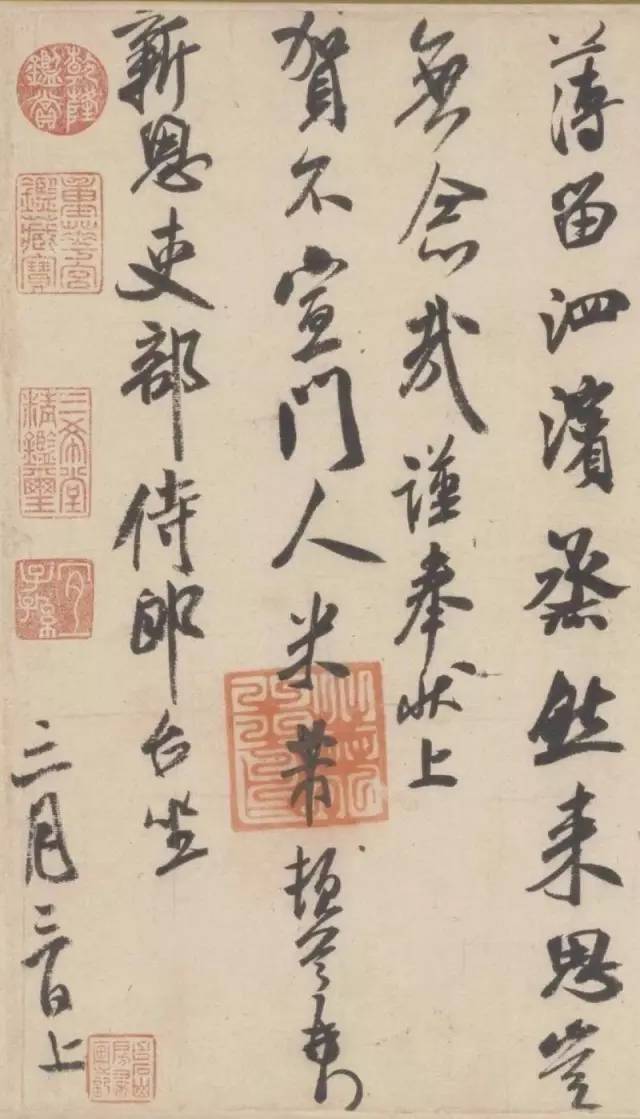 薄留泗濱烝然來思豈
無念哉謹奉狀上
賀不宣門人米芾頓首
新恩吏部侍郎台坐
三月三日上
乾隆鑑賞
重華宮鑑藏寶
三希堂精鑑璽
宜子孫